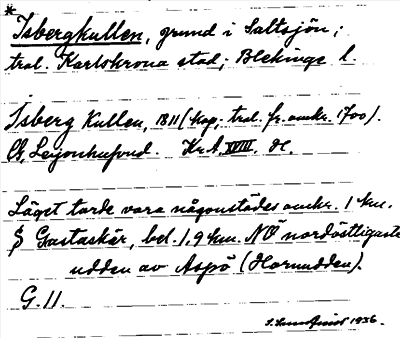 *
Isbergkullen, grund i Saltsjön;
tral. Karlskrona stad; Blekinge l.
Isberg Kullen, 1811 (kop; tral. fr. omkr. 1700).
Leyonhufvud. Kr.A. XVIII, H.
Läget torde vara någonstädes omkr. 1 km.
S Gastaskär, bel. 1,9 km. NÖ nordöstligaste
udden av Aspö (Hornudden).
G. 11.
1936.